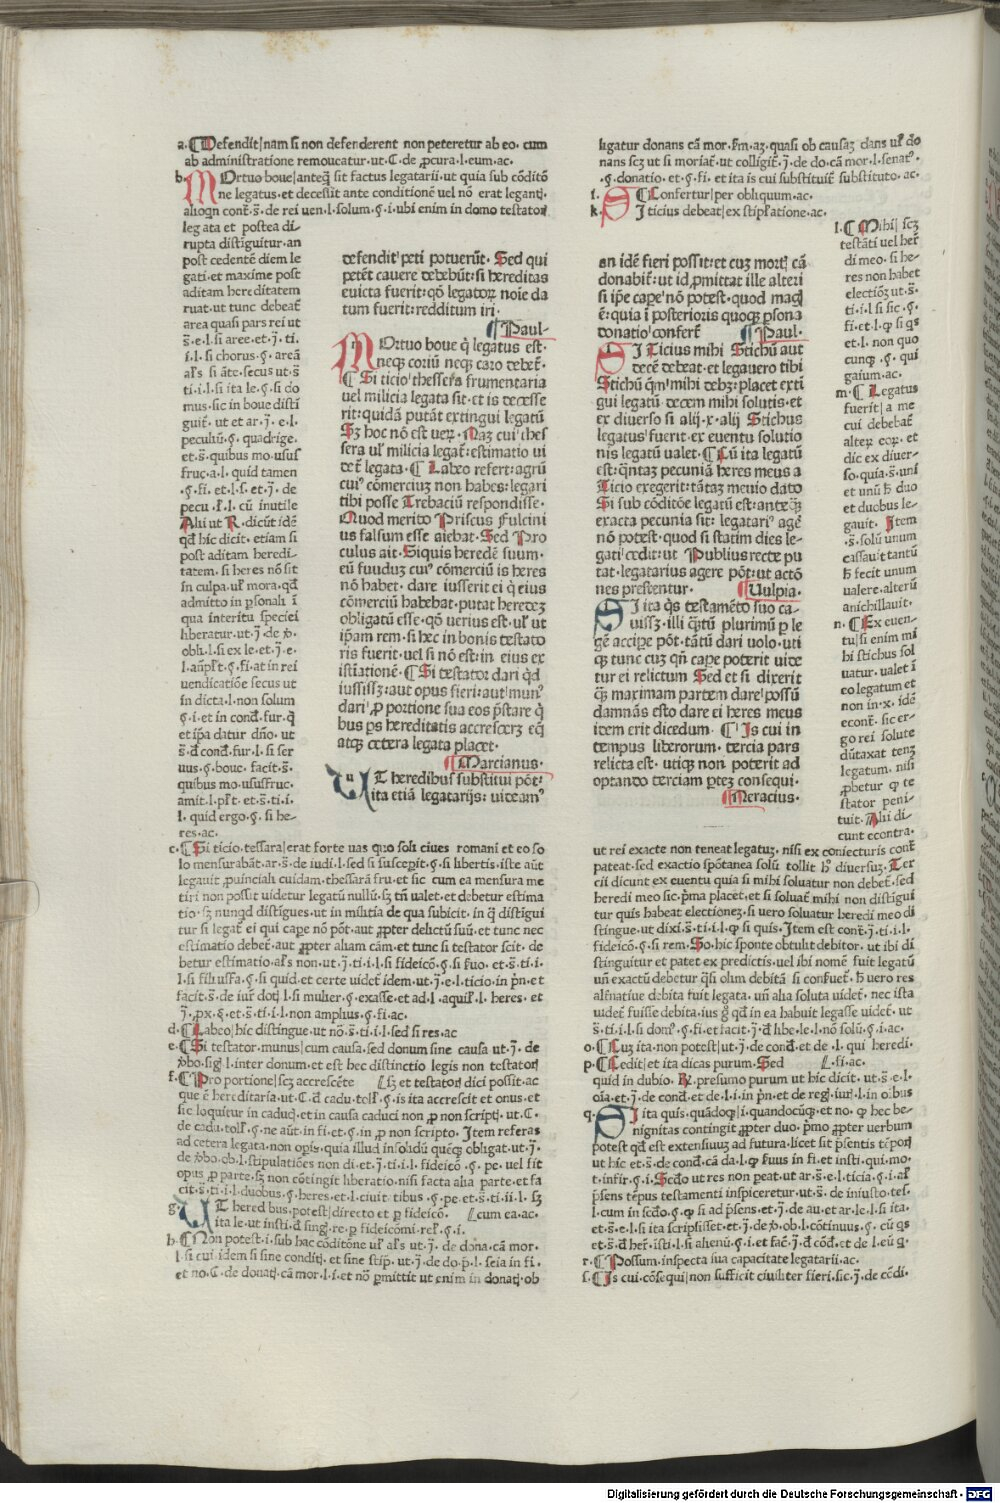 a. Defendit| nam si non defenderent non peteretur ab eo. cum
ab administratione remoueatur. ut. C. de ꝓcura. l. eum. ac.
b. MOrtuo boue| anteq̄ sit factus legatarii. ut quia sub cōditō
ne legatus. et decessit ante conditionē uel nō erat legantꝭ
alioqn cont̄. s̄. de rei uen. l. solum. ꝯ. i. ubi enim in domo testatorꝭ
legata et postea di-
rupta distīguitur. an
post cedentē diem le
gati. et maxime post
aditam hereditatem
ruat. ut tunc debeat̄
area quasi pars rei ut
s̄. e. l. si aree. et. j̄. ti.
i. l. si chorus. ꝯ. areā
al's si āte. secus ut. s̄
ti. i. l. si ita le. ꝯ. si do
mus. sic in boue distī
guit̄. ut et ar. j̄. e. l.
peculiū. ꝯ. quadrige.
et. s̄. quibus mo. usuf
fruc. a. l. quid tamen
.ꝯ. fi. et. l. s. et. j̄. de
pecu. l. cū inutile
Alii ut R. dicūt idē
qd hic dicit. etiam si
post aditam heredi-
tatem. si heres nō sit
in culpa. ul' mora. qd
admitto in ꝑsonali ī
qua interitu speciei
liberatur. ut. j̄. de
obli. l. si ex le. et. j̄. e.
uendicatiōe secus ut
in dicta. l. non solum
ꝯ. i. et in cond. fur. q
et ip̄a datur dn̄o. ut
s̄. d cond. fur. l. si ser
uus. ꝯ. boue. facit. s̄.
quibus mo. ususfruc.
amit. l. et. s̄. ti. i.
l. quid ergo. ꝯ. si he-
res. ac.
defendit peti potuerūt. Sed qui
petēt cauere debebūt: si hereditas
euicta fuerit: qō legatoꝝ noīe da
tum fuerit: redditum iri.
Paul.
MOrtuo boue q̄ legatus est.
neqꝫ coriū neqꝫ caro debet̄.
Si ticio thessera frumentaria
uel milicia legata sit. et is decesse
rit: quidā putāt extingui legatū
Sꝫ hoc nō est ueꝝ. Naꝫ cui thes
sera ul' milicia legat̄: estimatio ui
det̄ legata. Labeo refert: agrū
cui' comerciuꝫ non habes: legari
tibi posse Trebaciū respondisse.
Quod merito Priscus Fulcini
us falsum esse aiebat. Sed Pro
culus ait. Siquis heredē suum.
eū fuuduꝫ cui' cōmerciū is heres
nō habet. dare iusserit ei q̄ eius
cōmerciū habebat. putat heredeꝫ
obligatū esse. qō uerius est. ul' ut
ip̄am rem. si hec in bonis testato
ris fuerit. uel si nō est: in eius ex
istīationē. Si testator dari qd
iussissꝫ: aut opus fieri: aut mun'
dari: ꝓ portione sua eos p̄stare q̄
bus ps hereditatis accresceꝝ eq̄
atqꝫ cetera legata placet.
Marcianus.
UT heredibus substitui pōt:
ita etiā legatarijs: uideam'
c. Si ticio. tessara| erat forte uas quo soli ciues romani et eo so
lo mensurabāt. ar. s̄. de iudi. l. sed si susceꝑit. ꝯ. si libertis. iste aūt
legauit ꝓuinciali cuidam. thessarā fru. et sic cum ea mensura me
tiri non possit uidetur legatū nullū. sꝫ tn̄ ualet. et debetur estima
tio. sꝫ nunqd distigues. ut in militia de qua subicit. in q̄ distigui
tur si legat̄ ei qui cape nō pōt. aut ꝓpter delictū suū. et tunc nec
estimatio debet̄. aut ꝓpter aliam cām. et tunc si testator scit. de
betur estimatio. al's non. ut. j̄. ti. i. l. si fideicō. ꝯ. si uo. et. s̄. ti. i.
l. si filiusfa. ꝯ. si quid. et certe uidet̄ idem. ut. j̄. e. l. ticio. in pn̄. et
facit. s̄. de iur' dotꝭ l. si mulier. ꝯ. exasse. et ad. l. aquil'. l. heres. et
j̄. ꝓx. ꝯ. et. s̄. ti. i. l. non amplius. ꝯ. fi. ac.
d. Labeo| hic distingue. ut nō. s̄. ti. i. l. sed si res. ac
e. Si testator. munus| cum causa. sed donum sine causa ut. j̄. de
l. inter donum. et est hec distinctio legis non testatorꝭ
f. Pro portione| scꝫ accrescēte sꝫ et testatorꝭ dici possit. ac
que ē hereditaria. ut. C. d cadu. toll'. ꝯ. is ita accrescit et onus. et
sic loquitur in caducꝭ. et in causa caduci non ꝓ non scriptꝭ. ut. C.
de cadu. toll'. ꝯ. ne aūt. in fi. et. ꝯ. in ꝓ non scripto. Item referas
ad cetera legata. non opis. quia illud insolidū quēqꝫ obligat. ut. j̄.
de ob. l. stipulatiōes non di. et. j̄. ti. i. l. fideicō. ꝯ. pe. uel sit
opus ꝓ parte. sꝫ non cōtingit liberatio. nisi facta alia parte. et fa
cit. s̄. ti. i. l. duobus. ꝯ. heres. et. l. ciuitatibus. ꝯ. pe. et. s̄. ti. ii. l. sꝫ
g. UT heredibus. potest| directo et ꝑ fideicō. cum ea. ac.
ita le. ut insti. d singl. re. ꝑ fideicōmi. rel'. ꝯ. i.
h. Non potest. i. sub hac cōditōne ul' al's ut. j̄. de dona. cā mor.
l. si cui idem si sine conditꝭ. et sine stip. ut. j̄. de do. p̄. l. seia in fi.
et no. C. de donatꝭ. cā mor. l. i. et nō ꝑmittit ut enim in donatꝭ. ob
ligatur donans cā mor. quasi ob causaꝫ dans ul' do
nans scꝫ ut si moriat̄. ut colligit̄. j̄. de do. cā mor. l. senat'.
ꝯ. donatio. et. ꝯ. fi. et ita is cui substituit̄ substituto. ac.
i. Confertur| per obliquum. ac.
k. SI ticius debeat| ex stipl'atione. ac.
an idē fieri possit: et cuꝫ mortꝭ cā
donabit̄: ut id ꝓmittat ille alteri
si ip̄e cape nō potest. quod magꝭ
ē: quia ī posterioris quoqꝫ ꝑsona
donatio confert̄ Paul.
SI Ticius mihi Stichū aut
decē debeat. et legauero tibi
Stichū qm' mihi debꝫ: placet exti
gui legatū decem mihi solutis. et
ex diuerso si alij. x. alij Stichus
legatus fuerit. ex euentu solutio
nis legatū ualet. Cū ita legatū
est: qn̄taꝫ pecuniā heres meus a
Ticio exegerit: tātaꝫ meuio dato
Si sub cōditōe legatū est: anteq̄
exacta pecunia sit: legatari' age
nō potest. quod si statim dies le-
gati cedit: ut Publius recte pu
tat. legatarius agere pōt: ut actō
nes prestentur. Vulpia.
SI ita qs testamēto suo ca-
uissꝫ. illi qn̄tū plurimū ꝑ le
gē accipe pōt. tātū dari uolo. uti
qꝫ tunc cuꝫ qn̄ cape poterit uide
tur ei relictum Sed et si dixerit
q̄ maximam partem dare possū
damnās esto dare ei heres meus
item erit dicedum. Is cui in
tempus liberorum. tercia pars
relicta est. utiqꝫ non poterit ad
optando terciam ꝑteꝫ consequi.
Neracius.
l. Mihi| scꝫ
testāti uel her̄
di meo. si he-
res non habet
electiōꝫ ut. s̄.
ti. i. l. si sic. ꝯ.
fi. et. l. ꝙ si qs
et. l. non quo
cunqꝫ. ꝯ. qui
gaium. ac.
m. Legatus
fuerit| a me
cui debebat̄
alteꝝ eoꝝ. et
dic ex diuer-
so. quia. s̄. uni
et unū h̄ duo
et duobus le-
gauit. Item
.s̄. solū unum
cassauit tantū
h̄ fecit unum
ualere. alterū
anichillauit.
n. Ex euen-
tu| si enim mi
hi stichus sol
uatur. ualet ī
eo legatum et
non in. x. idē
econt̄. sic er-
go rei solute
dūtaxat tenꝫ
legatum. nisi
ꝓbetur ꝙ te
stator peni-
tuit. Alii di-
cunt econtra.
ut rei exacte non teneat legatuꝫ. nisi ex coniecturis cont̄
pateat. sed exactio spōtanea solū tollit h' diuersuꝫ. Ter
cii dicunt ex euentu quia si mihi soluatur non debet̄. sed
heredi meo sic. p̄ma placet. et si soluat̄ mihi non distigui
tur quis habeat electioneꝫ. si uero soluatur heredi meo di
stingue. ut dixi. s̄. ti. i. l. ꝙ si quis. Item est cont̄. j̄. ti. i. l.
fideicō. ꝯ. si rem. So. hic sponte obtulit debitor. ut ibi di
stinguitur et patet ex predictis. uel ibi nomē fuit legatū
un̄ exactū debetur q̄si olim debitā si confuet̄. h̄ uero res
al'natiue debita fuit legata. un̄ alia soluta uidet̄. nec ista
uidet̄ fuisse debita. ius g qd in ea habuit legasse uidet̄. ut
s̄. ti. i. l. si dom'. ꝯ. fi. et facit. j̄. d libe. le. l. nō solū. ꝯ. i. ac.
o. Cuꝫ ita. non potest| ut. j̄. de cond. et de. l. qui heredi.
p. Cedit| et ita dicas purum. Sed fi. ac.
quid in dubio. R. presumo purum ut hic dicit. ut. s̄. e. l.
oīa. et. j̄. de cond. et de. l. i. in pn̄. et de regl. iur. l. in oībus
q. SI ita quis. quādoqꝫ| i. quandocūqꝫ. et no. ꝙ hec be-
nignitas contingit ꝓpter duo. p̄mo ꝓpter uerbum
potest qd est extensiuuꝫ ad futura. licet sit p̄sentis tēporꝭ
ut hic et. s̄. de cond. cā da. l. ꝙ in fi. et insti. qui mo.
t. infir. ꝯ. i. Scdo ut res non ꝑeat. ut ar. s̄. e. l. ticia. ꝯ. i. al'
p̄sens tēpus testamenti inspiceretur. ut. s̄. de iniusto. tes.
l. cum in scdo. ꝯ. ꝙ si ad p̄sens. et. j̄. de au. et ar. le. l. si ita.
et. s̄. e. l. si ita scripsisset. et. j̄. de ob. l. cōtinuus. ꝯ. cū qs
et. s̄. d her̄. isti. l. si alienū. ꝯ. i. et fac̄. j̄. d cōd. et de l. eū q.
r. Possum. inspecta sua capacitate legatarii. ac.
s. Is cui. cōsequi| non sufficit ciuiliter fieri. sic. j̄. de cōdi.
Digitalisierung gefördert durch die Deutsche Forschungsgemeinschaft - DFG